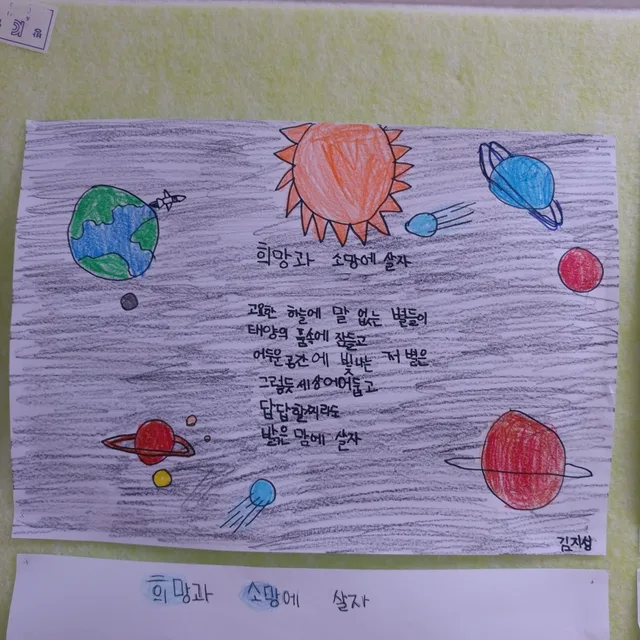 희망과 소망에 살자
고요한 하늘에 말 없는 별들이
태양의 품속에 잠들고
어두운 공간에 빛나는 저 별은
그렇듯 세상에 어둡고
답답할찌라도
밝은 맘에 살자
김지섭
희망과 소망에 살자